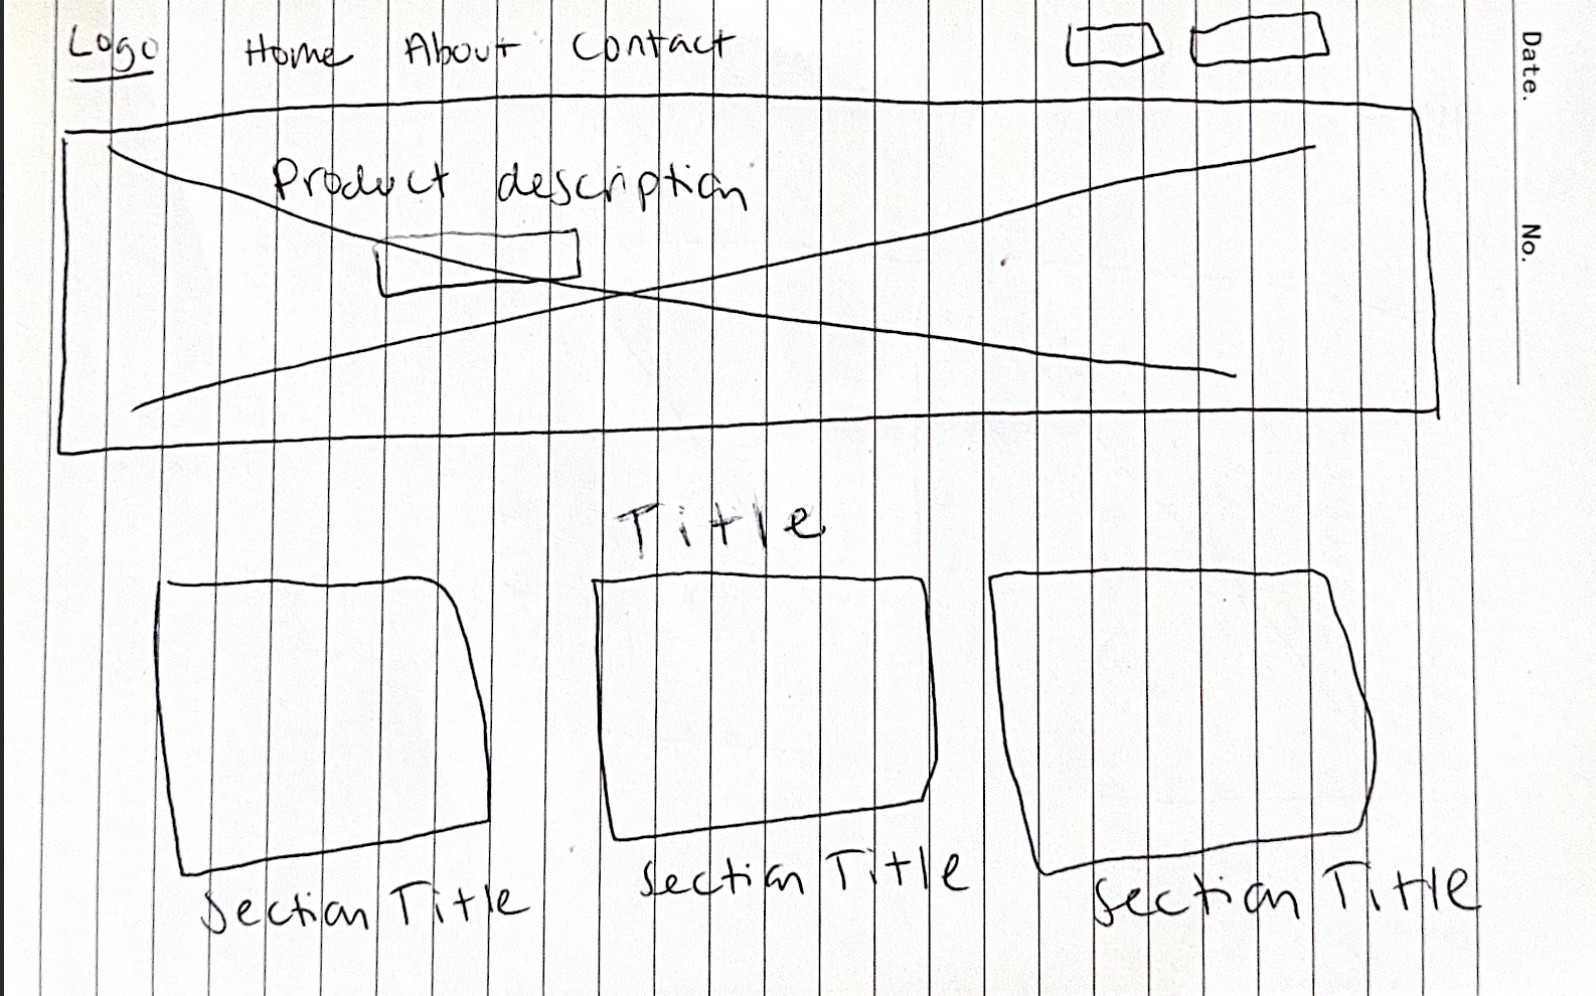 Logo Home About Contact
Product description
Title
Section Title Section Title Section Title
Date. No.